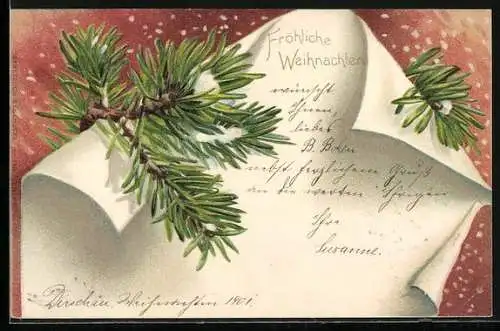 Fröhliche
Weihnachten
wünscht
Ihnen,
liebes
B. 
nebst herzlichem Gruß
an die werten Ihrigen
Ihre
Susanne.
Dirschau, Weihnachten 1901.